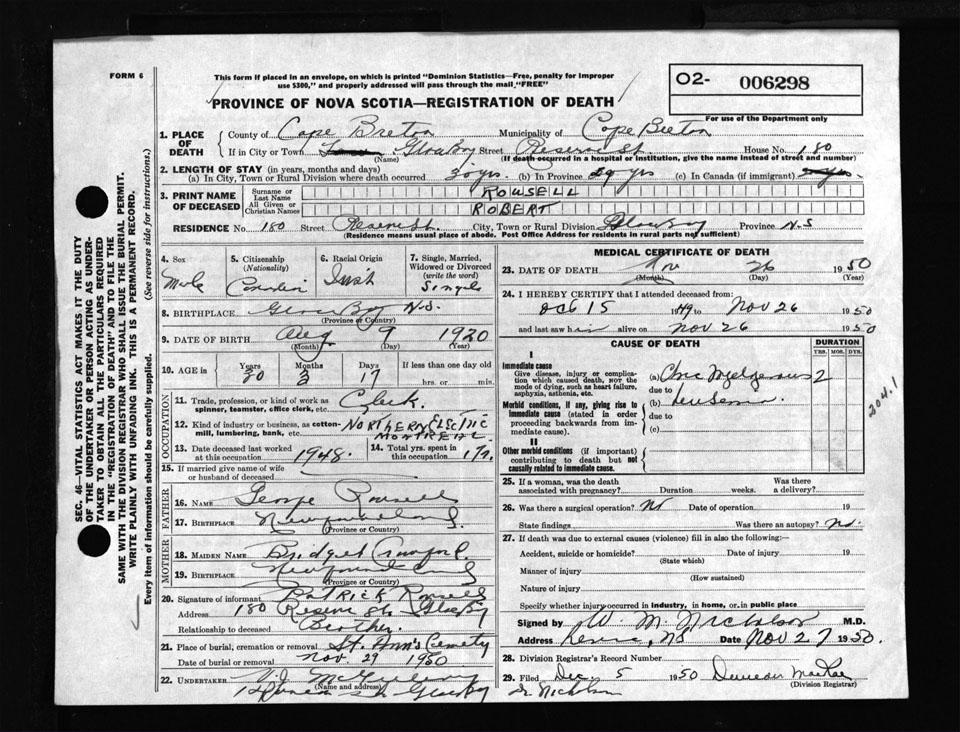 FORM 6
This form if placed in an envelope, on which is printed "Dominion Statistics—Free, penalty for improper
use $300," and properly addressed will pass through the mail "FREE"
O2- 006298
For use of the Department only
PROVINCE OF NOVA SCOTIA—REGISTRATION OF DEATH
SEC. 46—VITAL STATISTICS ACT MAKES IT THE DUTY
OF THE UNDERTAKER OR PERSON ACTING AS UNDER-
TAKER TO OBTAIN ALL THE PARTICULARS REQUIRED
IN THE "REGISTRATION OF DEATH" AND TO FILE THE
SAME WITH THE DIVISION REGISTRAR WHO SHALL ISSUE THE BURIAL PERMIT.
WRITE PLAINLY WITH UNFADING INK. THIS IS A PERMANENT RECORD.
Every item of information should be carefully supplied. (See reverse side for instructions.)
1. PLACE OF DEATH County of Cape Breton Municipality of Cape Breton
If in City or Town Glace Bay Street Reserve St. House No. 180
(Name) (If death occurred in a hospital or institution, give the name instead of street and number)
2. LENGTH OF STAY (in years, months and days)
(a) In City, Town or Rural Division where death occurred 30 yrs. (b) In Province yrs (c) In Canada (if immigrant)
3. PRINT NAME OF DECEASED Surname or Last Name ROWSELL
All Given or Christian Names ROBERT
RESIDENCE No. 180 Street Reserve St. City, Town or Rural Division Glace Bay Province N.S
(Residence means usual place of abode. Post Office Address for residents in rural parts not sufficient)
4. Sex Male
5. Citizenship (Nationality) Canadian
6. Racial Origin Irish
7. Single, Married, Widowed or Divorced (write the word) Single
8. BIRTHPLACE Glace Bay N.S.
(Province or Country)
9. DATE OF BIRTH Aug 9 1920
(Month) (Day) (Year)
10. AGE in Years 30 Months 3 Days 17 If less than one day old
hrs. or min.
OCCUPATION
11. Trade, profession, or kind of work as
spinner, teamster, office clerk, etc. Clerk.
12. Kind of industry or business, as cotton-
mill, lumbering, bank, etc. NORTHERN ELECTRIC
MONTREAL
13. Date deceased last worked
at this occupation 1948.
14. Total yrs. spent in
this occupation 1 yr.
15. If married give name of wife
or husband of deceased
FATHER
16. NAME George Rowsell
17. BIRTHPLACE Newfoundland
(Province or Country)
MOTHER
18. MAIDEN NAME Bridget Crawford.
19. BIRTHPLACE Newfoundland
(Province or Country)
20. Signature of informant PATRICK Rowsell
Address 180 Reserve St. Glace Bay
Relationship to deceased Brother.
21. Place of burial, cremation or removal St. Ann's Cemetery
Date of burial or removal Nov. 29 1950
22. UNDERTAKER V.J.
(Name and address)
Glace Bay
MEDICAL CERTIFICATE OF DEATH
23. DATE OF DEATH Nov 26 1950
(Month) (Day) (Year)
24. I HEREBY CERTIFY that I attended deceased from:
Oct 15 1949 to Nov 26 1950
and last saw him alive on Nov 26 1950
CAUSE OF DEATH
DURATION
YRS. MOS. DYS.
I
Immediate cause
Give disease, injury or complica-
tion which caused death, NOT the
mode of dying, such as heart failure,
asphyxia, asthenia, etc.
(a) Myelogenous 2
due to
Morbid conditions, if any, giving rise to
immediate cause (stated in order
proceeding backwards from im-
mediate cause).
(b) Leukemia.
due to
(c)
204.1
II
Other morbid conditions (if important)
contributing to death but not
causally related to immediate cause.
25. If a woman, was the death
associated with pregnancy? Duration weeks. Was there
a delivery?
26. Was there a surgical operation? No Date of operation 19
State findings Was there an autopsy? No.
27. If death was due to external causes (violence) fill in also the following:—
Accident, suicide or homicide? Date of injury 19
(State which)
Manner of injury
(How sustained)
Nature of injury
Specify whether injury occurred in industry, in home, or in public place
Signed by W. M. Nicholson M.D.
Address N.S Date Nov 27 1950.
28. Division Registrar's Record Number
29. Filed Dec. 5 1950 Duncan MacRae
(Division Registrar)
Nicholson